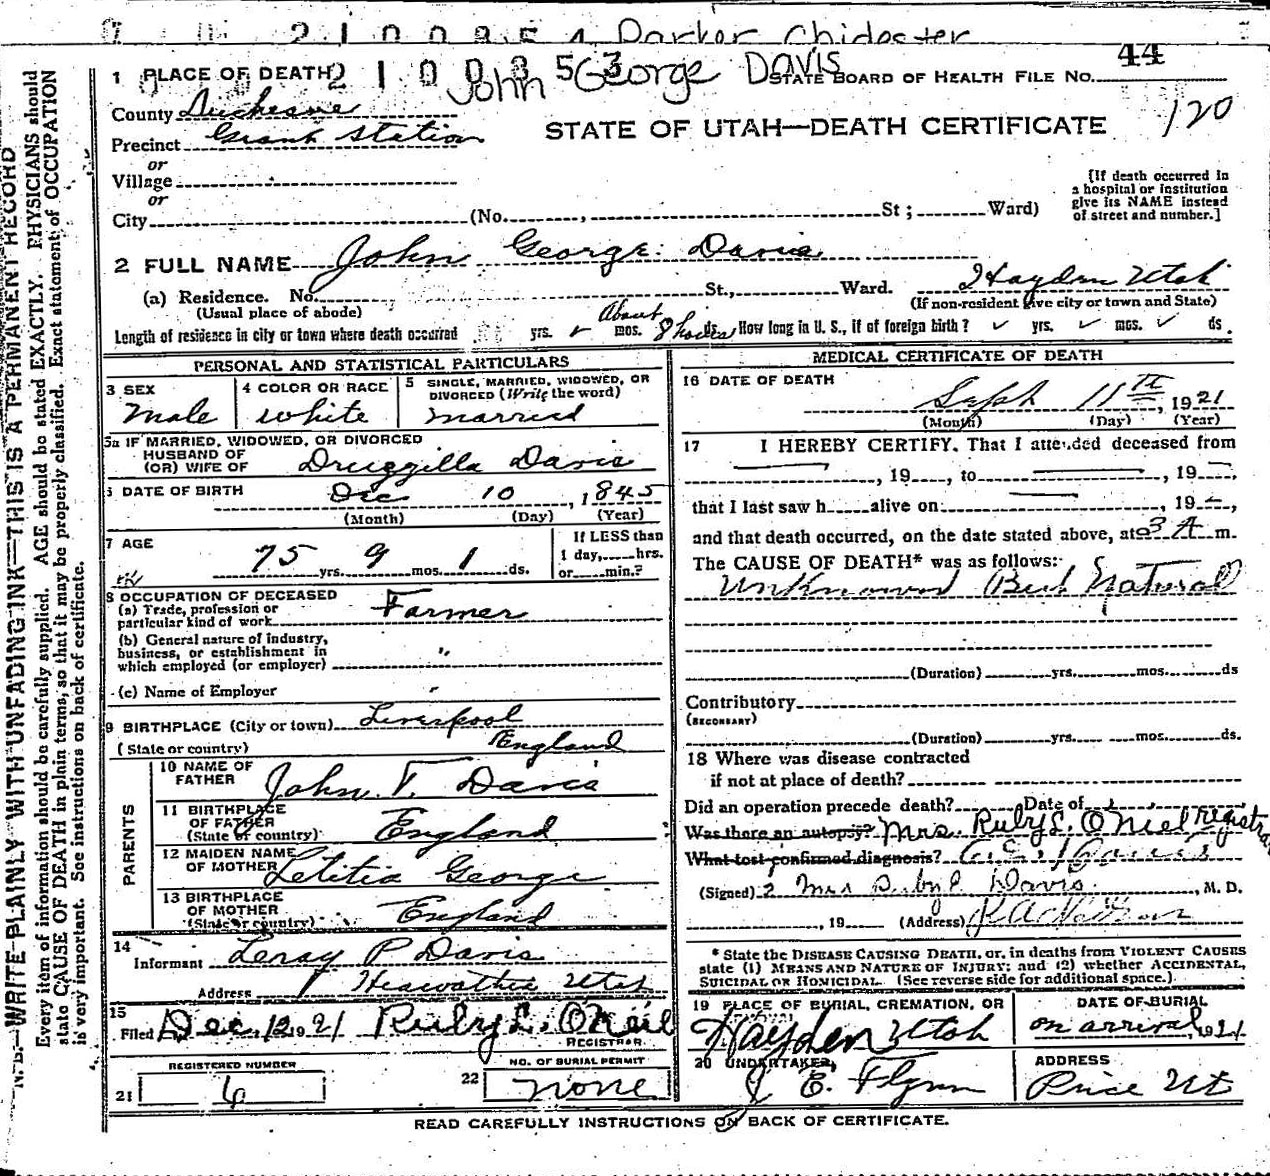 2100954 Parker Chidester
1 PLACE OF DEATH 2100953 John George Davis STATE BOARD OF HEALTH FILE NO. 44
County Duchesne
120
STATE OF UTAH—DEATH CERTIFICATE
Precinct Grant Station
or
Village
or
City (No. , St ; Ward)
[If death occurred in
a hospital or institution
give its NAME instead
of street and number.]
2 FULL NAME John George Davis
(a) Residence. No. St., Ward. Hayden Utah
(Usual place of abode) (If non-resident give city or town and State)
Length of residence in city or town where death occurred yrs. mos. About 8 hours ds. How long in U. S., if of foreign birth? yrs. mos. ds.
PERSONAL AND STATISTICAL PARTICULARS
3 SEX Male
4 COLOR OR RACE white
5 SINGLE, MARRIED, WIDOWED, OR
DIVORCED (Write the word)
married
5a IF MARRIED, WIDOWED, OR DIVORCED
HUSBAND OF
(OR) WIFE OF Druzzilla Davis
6 DATE OF BIRTH Dec 10, 1845
(Month) (Day) (Year)
7 AGE
75 yrs. 9 mos. 1 ds.
If LESS than
1 day, hrs.
or min.?
8 OCCUPATION OF DECEASED
(a) Trade, profession or
particular kind of work Farmer
(b) General nature of industry,
business, or establishment in
which employed (or employer) "
(c) Name of Employer
9 BIRTHPLACE (City or town) Liverpool
(State or country) England
PARENTS
10 NAME OF
FATHER John T. Davis
11 BIRTHPLACE
OF FATHER
(State or country) England
12 MAIDEN NAME
OF MOTHER Letitia George
13 BIRTHPLACE
OF MOTHER
(State or country) England
14
Informant Leroy P Davis
Address Hiawatha Utah
15
Filed Dec. 12 1921 Ruby L. O'Neil
REGISTRAR
REGISTERED NUMBER
21 6
NO. OF BURIAL PERMIT
22 none
MEDICAL CERTIFICATE OF DEATH
16 DATE OF DEATH
Sept 11th, 1921
(Month) (Day) (Year)
17 I HEREBY CERTIFY, That I attended deceased from
, 19 , to , 19 ,
that I last saw h alive on , 19 ,
and that death occurred, on the date stated above, at 3 A m.
The CAUSE OF DEATH* was as follows:
Unknown But Natural
(Duration) yrs. mos. ds
Contributory
(SECONDARY)
(Duration) yrs. mos. ds.
18 Where was disease contracted
if not at place of death?
Did an operation precede death? Date of
Was there an autopsy? Mrs. Ruby L. O'Niel registrar
What test confirmed diagnosis?
(Signed) 2 Mrs Davis , M. D.
, 19 (Address)
* State the DISEASE CAUSING DEATH, or, in deaths from VIOLENT CAUSES
state (1) MEANS AND NATURE OF INJURY; and (2) whether ACCIDENTAL,
SUICIDAL OR HOMICIDAL. (See reverse side for additional space.)
19 PLACE OF BURIAL, CREMATION, OR
Hayden Utah
DATE OF BURIAL
on arrival, 1921
20 UNDERTAKER
J E. Flynn
ADDRESS
Price Ut
READ CAREFULLY INSTRUCTIONS ON BACK OF CERTIFICATE.
N. B.—WRITE PLAINLY WITH UNFADING INK—THIS IS A PERMANENT RECORD
Every item of information should be carefully supplied. AGE should be stated EXACTLY. PHYSICIANS should
state CAUSE OF DEATH in plain terms, so that it may be properly classified. Exact statement of OCCUPATION
is very important. See instructions on back of certificate.